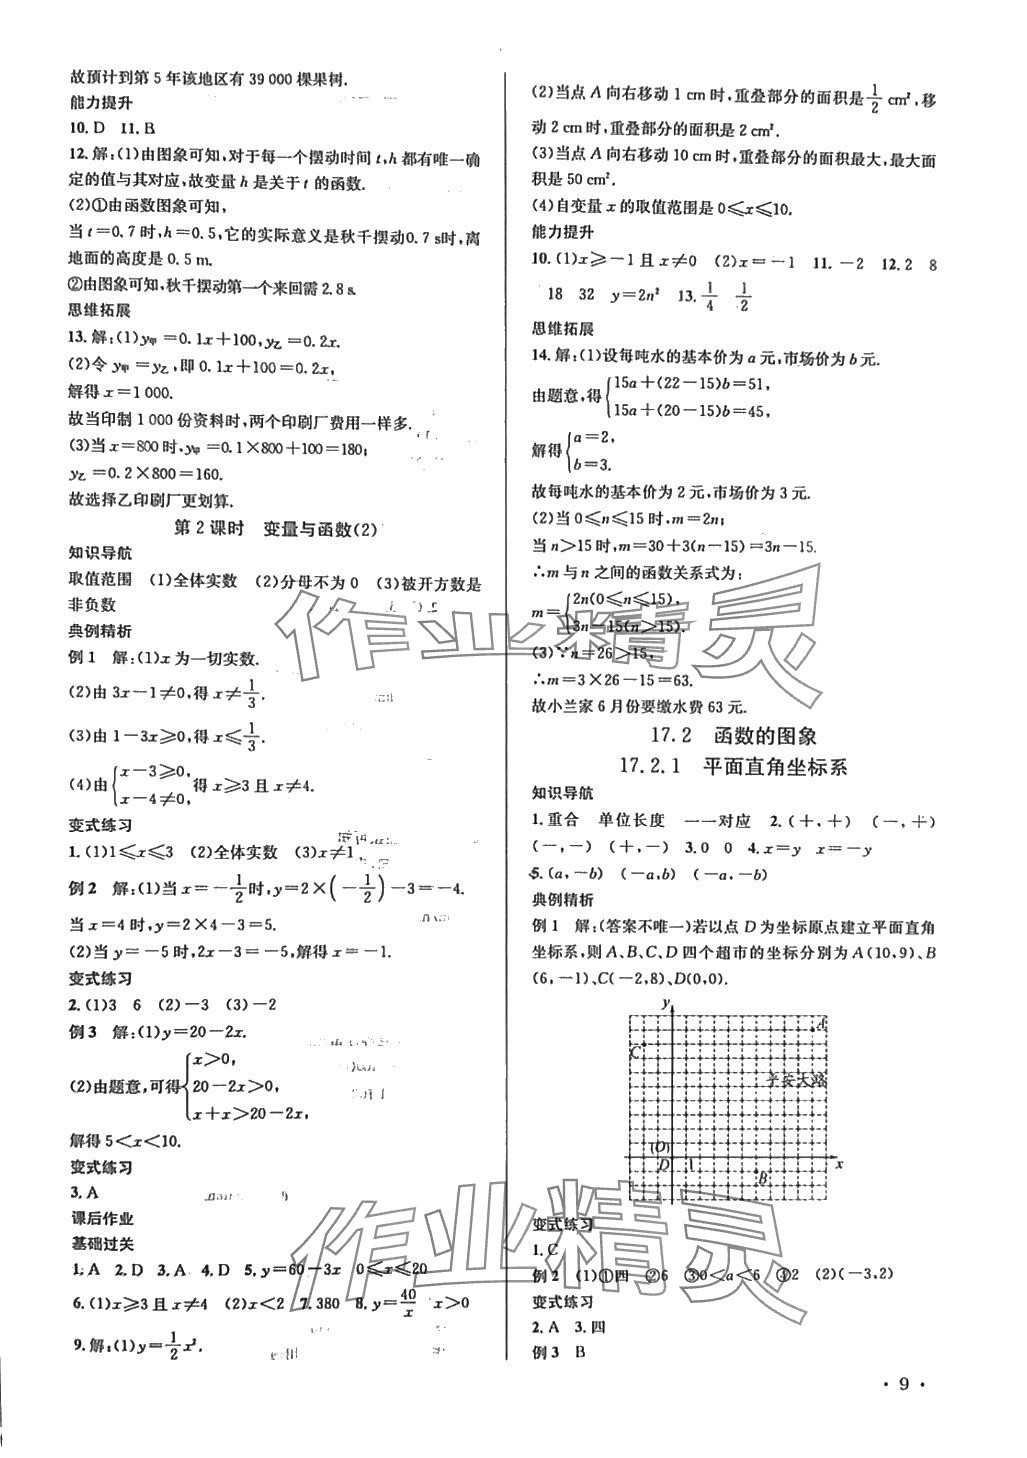 故预计到第 5 年该地区有 39 000 棵果树.
能力提升
10. D  11. B
12. 解:(1)由图象可知,对于每一个摆动时间 t,h 都有唯一确
定的值与其对应,故变量 h 是关于 t 的函数.
(2)①由函数图象可知,
当 t=0.7 时,h=0.5,它的实际意义是秋千摆动0.7 s时,离
地面的高度是 0.5 m.
②由图象可知,秋千摆动第一个来回需 2.8 s.
思维拓展
13. 解:(1)y甲=0.1x+100,y乙=0.2x.
(2)令 y甲=y乙,即 0.1x+100=0.2x,
解得 x=1 000.
故当印制 1 000 份资料时,两个印刷厂费用一样多.
(3)当 x=800 时,y甲=0.1×800+100=180;
y乙=0.2×800=160.
故选择乙印刷厂更划算.
第 2 课时  变量与函数(2)
知识导航
取值范围  (1)全体实数  (2)分母不为 0  (3)被开方数是
非负数
典例精析
例 1  解:(1)x 为一切实数.
(2)由 3x-1≠0,得 x≠1/3.
(3)由 1-3x≥0,得 x≤1/3.
(4)由{x-3≥0, x-4≠0,得 x≥3 且 x≠4.
变式练习
1. (1)1≤x≤3  (2)全体实数  (3)x≠1
例 2  解:(1)当 x=-1/2时,y=2×(-1/2)-3=-4.
当 x=4 时,y=2×4-3=5.
(2)当 y=-5 时,2x-3=-5,解得 x=-1.
变式练习
2. (1)3  6  (2)-3  (3)-2
例 3  解:(1)y=20-2x.
(2)由题意,可得{x>0, 20-2x>0, x+x>20-2x,
解得 5<x<10.
变式练习
3. A
课后作业
基础过关
1. A  2. D  3. A  4. D  5. y=60-3x  0≤x≤20
6. (1)x≥3 且 x≠4  (2)x<2  7. 380  8. y=40/x  x>0
9. 解:(1)y=1/2x².
(2)当点 A 向右移动 1 cm 时,重叠部分的面积是1/2 cm²,移
动 2 cm 时,重叠部分的面积是 2 cm².
(3)当点 A 向右移动 10 cm 时,重叠部分的面积最大,最大面
积是 50 cm².
(4)自变量 x 的取值范围是 0≤x≤10.
能力提升
10. (1)x≥-1 且 x≠0  (2)x=-1  11. -2  12. 2  8
18  32  y=2n²  13. 1/4  1/2
思维拓展
14. 解:(1)设每吨水的基本价为 a 元,市场价为 b 元.
由题意,得{15a+(22-15)b=51, 15a+(20-15)b=45,
解得{a=2, b=3.
故每吨水的基本价为 2 元,市场价为 3 元.
(2)当 0≤n≤15 时,m=2n;
当 n>15 时,m=30+3(n-15)=3n-15.
∴m 与 n 之间的函数关系式为:
m={2n(0≤n≤15), 3n-15(n>15).
(3)∵n=26>15,
∴m=3×26-15=63.
故小兰家 6 月份要缴水费 63 元.
17.2  函数的图象
17.2.1  平面直角坐标系
知识导航
1. 重合  单位长度  一一对应  2. (+,+)  (-,+)
(-,-)  (+,-)  3. 0  0  4. x=y  x=-y
5. (a,-b)  (-a,b)  (-a,-b)
典例精析
例 1  解:(答案不唯一)若以点 D 为坐标原点建立平面直角
坐标系,则 A、B、C、D 四个超市的坐标分别为 A(10,9)、B
(6,-1)、C(-2,8)、D(0,0).
y
A
C
平安大路
(O)
D  1  x
B
变式练习
1. C
例 2  (1)①四  ②6  ③0<a<6  ④2  (2)(-3,2)
变式练习
2. A  3. 四
例 3  B
· 9 ·
作业精灵
作业精灵